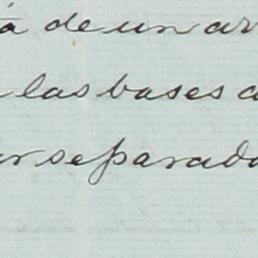 á de un ar
las bases a
ar separado